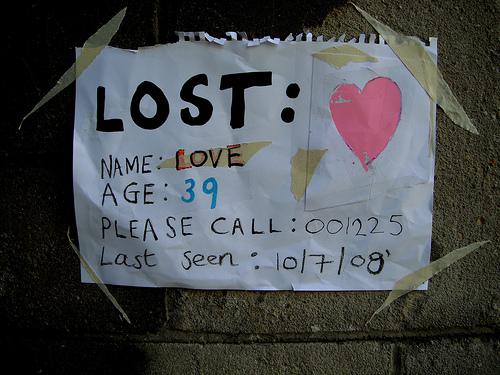 LOST:
NAME: LOVE
AGE: 39
PLEASE CALL: 001225
Last seen: 10/7/08'